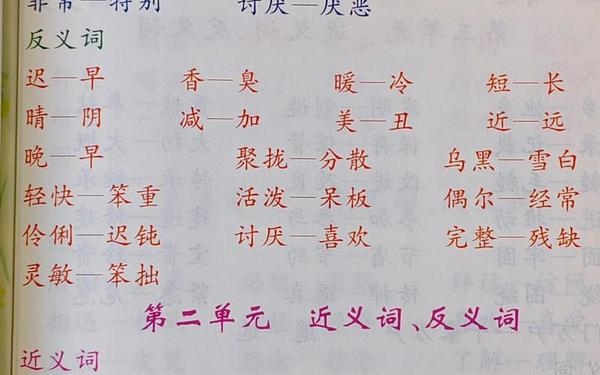 非常—特别 讨厌—厌恶
反义词
迟—早 香—臭 暖—冷 短—长
晴—阴 减—加 美—丑 近—远
晚—早 聚拢—分散 乌黑—雪白
轻快—笨重 活泼—呆板 偶尔—经常
伶俐—迟钝 讨厌—喜欢 完整—残缺
灵敏—笨拙
第二单元 近义词、反义词
近义词